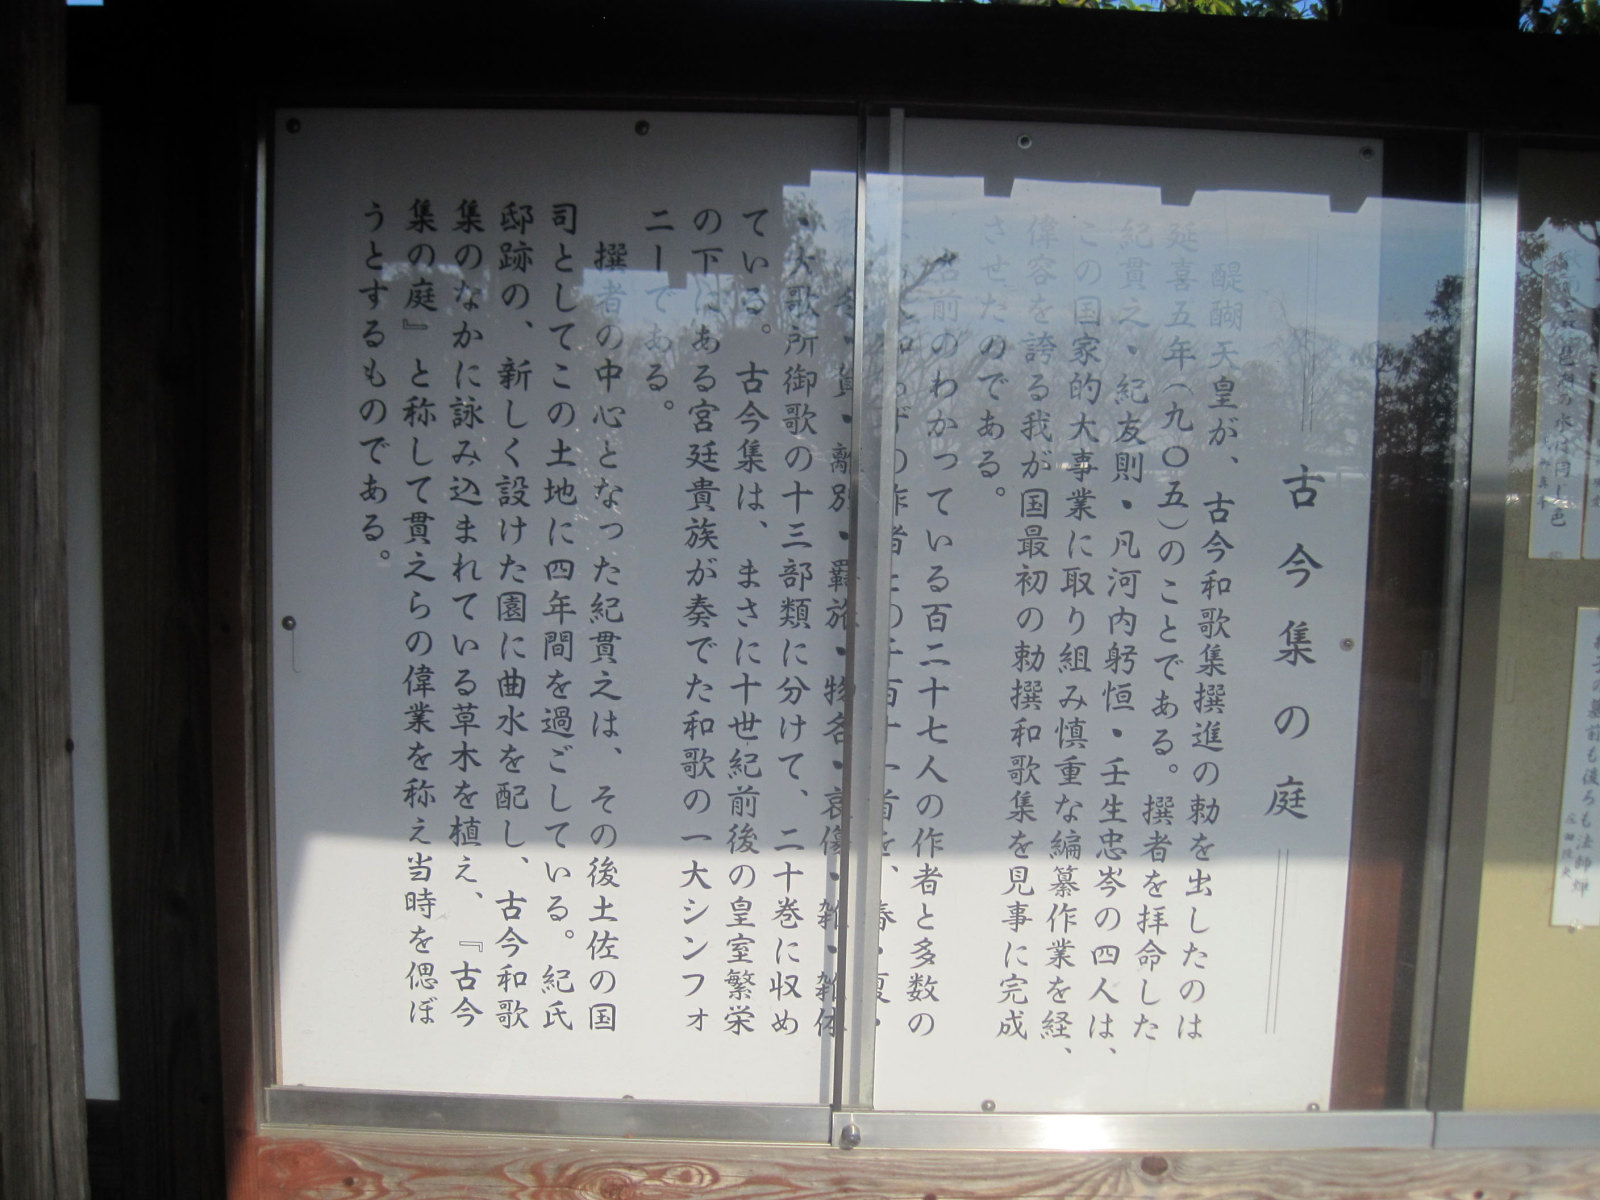 古今集の庭
醍醐天皇が、古今和歌集撰進の勅を出したのは
延喜五年(九〇五)のことである。撰者を拝命した
紀貫之・紀友則・凡河内躬恒・壬生忠岑の四人は、
この国家的大事業に取り組み慎重な編纂作業を経、
偉容を誇る我が国最初の勅撰和歌集を見事に完成
させたのである。
名前のわかっている百二十七人の作者と多数の
の作者
首を、春・夏・
冬・賀・離別・羇旅・物名・哀傷・雑・雑体
・大歌所御歌の十三部類に分けて、二十巻に収め
ている。古今集は、まさに十世紀前後の皇室繁栄
の下にある宮廷貴族が奏でた和歌の一大シンフォ
ニーである。
撰者の中心となった紀貫之は、その後土佐の国
司としてこの土地に四年間を過ごしている。紀氏
邸跡の、新しく設けた園に曲水を配し、古今和歌
集のなかに詠み込まれている草木を植え、『古今
集の庭』と称して貫之らの偉業を称え当時を偲ぼ
うとするものである。